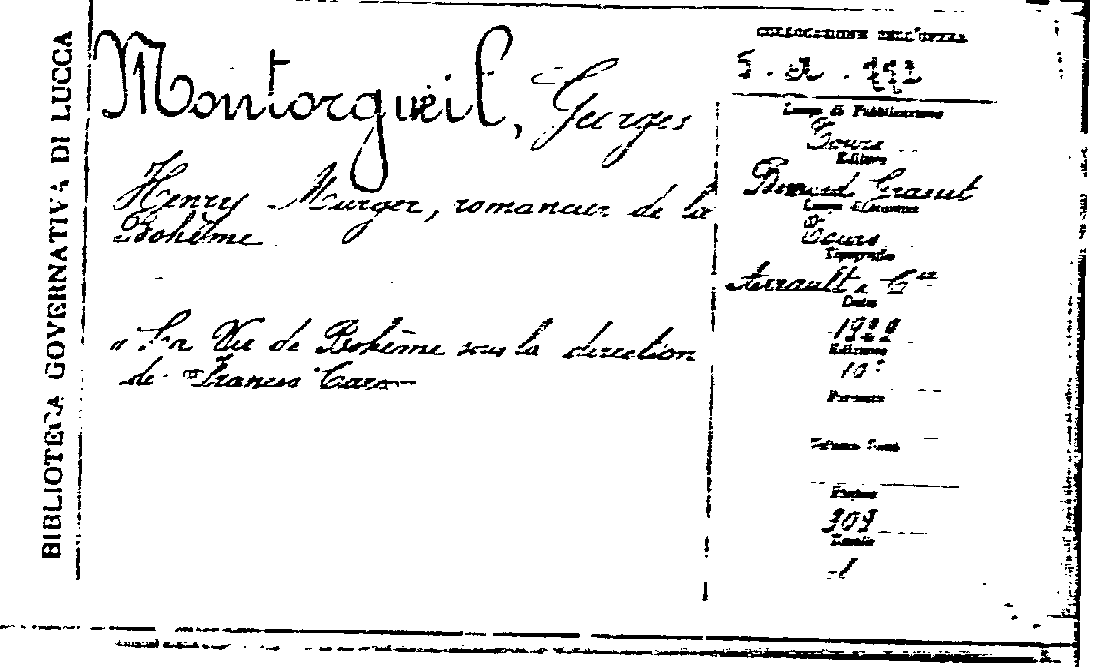 BIBLIOTECA GOVERNATIVA DI LUCCA
Montorgueil, Georges
Henry Murger, romancier de la
Bohême
« La Vie de Bohême sous la direction
de Francis Carco
COLLOCAZIONE DELL'OPERA
Luogo di Pubblicazione
Tours
Editore
Bernard Grasset
Luogo di Stampa
Tours
Tipografia
Arrault & Cie
Data
1928
Edizione
10ª
Formato
Pagine